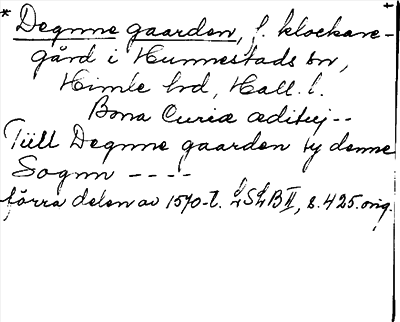 * Degnne gaarden, f. klockare-
gård i Hunnestads sn,
Himle hd, Hall. l.
Bona Curiæ ædituj --
Till Degnne gaarden vy denne
Sognn ----
förra delen av 1570-t. LSLB II, s. 425. orig.